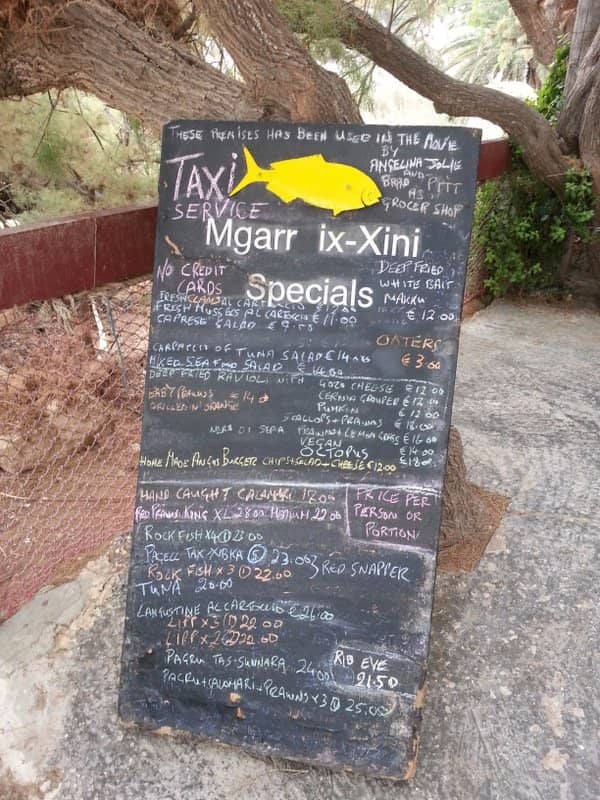 THESE PREMISES HAS BEEN USED IN THE MOVIE
BY
ANGELINA JOLIE
AND
BRAD PITT
AS
GROCER SHOP
TAXI
SERVICE
Mgarr ix-Xini
Specials
NO CREDIT
CARDS
DEEP FRIED
WHITE BAIT
MAKKU
€ 12.00
FRESH CLAMS AL CARTOCCIO
FRESH MUSSELS AL CARTOCCIO € 11.00
CAPRESE SALAD € 9.50
OYSTERS
€ 3.00
CARPACCIO OF TUNA SALAD € 14.00
MIXED SEAFOOD SALAD € 14.00
DEEP FRIED RAVIOLI WITH GOZO CHEESE € 12.00
CERNIA GROUPER € 12.00
PUMKIN € 12.00
SCALLOPS + PRAWNS € 18.00
BABY PRAWNS € 14.00
GRILLED IN ORANGE
NERO DI SEPA PRAWNS + LEMON GRASS € 16.00
VEGAN € 14.00
OCTOPUS € 18.00
HOME MADE ANGUS BURGER CHIPS + SALAD + CHEESE € 12.00
HAND CAUGHT CALAMARI 18.00
RED PRAWNS KING XL 28.00 MEDIUM 22.00
PRICE PER
PERSON OR
PORTION
ROCK FISH X4 ① 23.00
PAGELL TAX-XIBKA ⑤ 23.00
ROCK FISH X 3 ① 22.00
RED SNAPPER
TUNA 20.00
LANGUSTINE AL CARTOCCIO € 26.00
LIPP X 3 ① 22.00
LIPP X 2 ① 22.00
PAGRU TAS-SUNNARA 24.00
RIB EYE
21.50
PAGRU + CALAMARI + PRAWNS X 3 ① 25.00